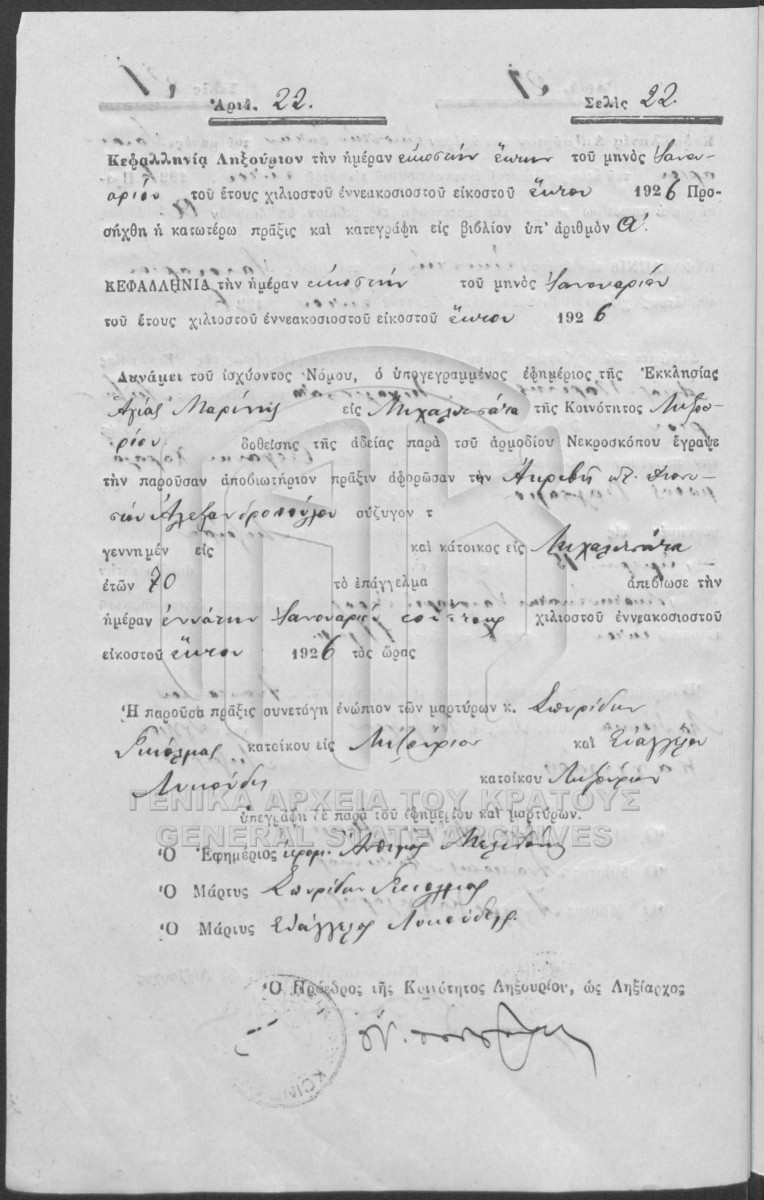 Ἀριθ. 22. Σελὶς 22
Κεφαλληνία Ληξούριον τὴν ἡμέραν εἰκοστὴν ἕκτην τοῦ μηνὸς Ἰανου-
αρίου τοῦ ἔτους χιλιοστοῦ ἐννεακοσιοστοῦ εἰκοστοῦ ἕκτου 1926 Προ-
σήχθη ἡ κατωτέρω πρᾶξις καὶ κατεγράφη εἰς βιβλίον ὑπ' ἀριθμὸν Α'.
ΚΕΦΑΛΛΗΝΙΑ τὴν ἡμέραν εἰκοστὴν τοῦ μηνὸς Ἰανουαρίου
τοῦ ἔτους χιλιοστοῦ ἐννεακοσιοστοῦ εἰκοστοῦ ἕκτου 1926
Δυνάμει τοῦ ἰσχύοντος Νόμου, ὁ ὑπογεγραμμένος ἐφημέριος τῆς Ἐκκλησίας
Ἁγίας Μαρίνης εἰς Μιχαλιτσάτα τῆς Κοινότητος Ληξου-
ρίου δοθείσης τῆς ἀδείας παρὰ τοῦ ἁρμοδίου Νεκροσκόπου ἔγραψε
τὴν παροῦσαν ἀποβιωτήριον πρᾶξιν ἀφορῶσαν τὴν Ἀκριβῆ Διονυ-
σίου Ἀλεξανδροπούλου σύζυγον τ
γεννημέν εἰς καὶ κάτοικος εἰς Μιχαλιτσάτα
ἐτῶν 70 τὸ ἐπάγγελμα ἀπεβίωσε τὴν
ἡμέραν ἐννάτην Ἰανουαρίου χιλιοστοῦ ἐννεακοσιοστοῦ
εἰκοστοῦ ἕκτου 1926 τὰς ὥρας
Ἡ παροῦσα πρᾶξις συνετάγη ἐνώπιον τῶν μαρτύρων κ. Σπυρίδων
Γκιόλμας κατοίκου εἰς Ληξούριον καὶ Εὐάγγελου
Λυκούδης κατοίκου Ληξούριον
ὑπεγράφη δὲ παρὰ τοῦ ἐφημερίου καὶ μαρτύρων.
ΓΕΝΙΚΑ ΑΡΧΕΙΑ ΤΟΥ ΚΡΑΤΟΥΣ
GENERAL STATE ARCHIVES
Ὁ Ἐφημέριος ἱερομ. Ἄνθιμος
Ὁ Μάρτυς Σπυρίδων Γκιόλμας
Ὁ Μάρτυς Εὐάγγελος Λυκούδης
Ὁ Πρόεδρος τῆς Κοινότητος Ληξουρίου, ὡς Ληξίαρχος